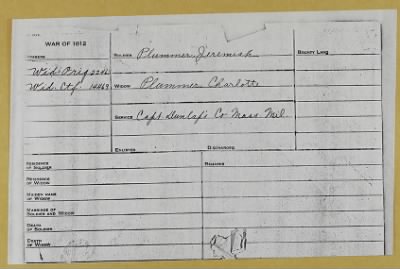 WAR OF 1812
SOLDIER Plummer Jeremiah
BOUNTY LAND
NUMBERS
Wid. Orig
Wid. Ctf. 14469
WIDOW Plummer Charlotte
SERVICE Capt Dunlap's Co Mass Mil.
ENLISTED
DISCHARGED
RESIDENCE
OF SOLDIER
REMARKS
RESIDENCE
OF WIDOW
MAIDEN NAME
OF WIDOW
MARRIAGE OF
SOLDIER AND WIDOW
DEATH
OF SOLDIER
DEATH
OF WIDOW